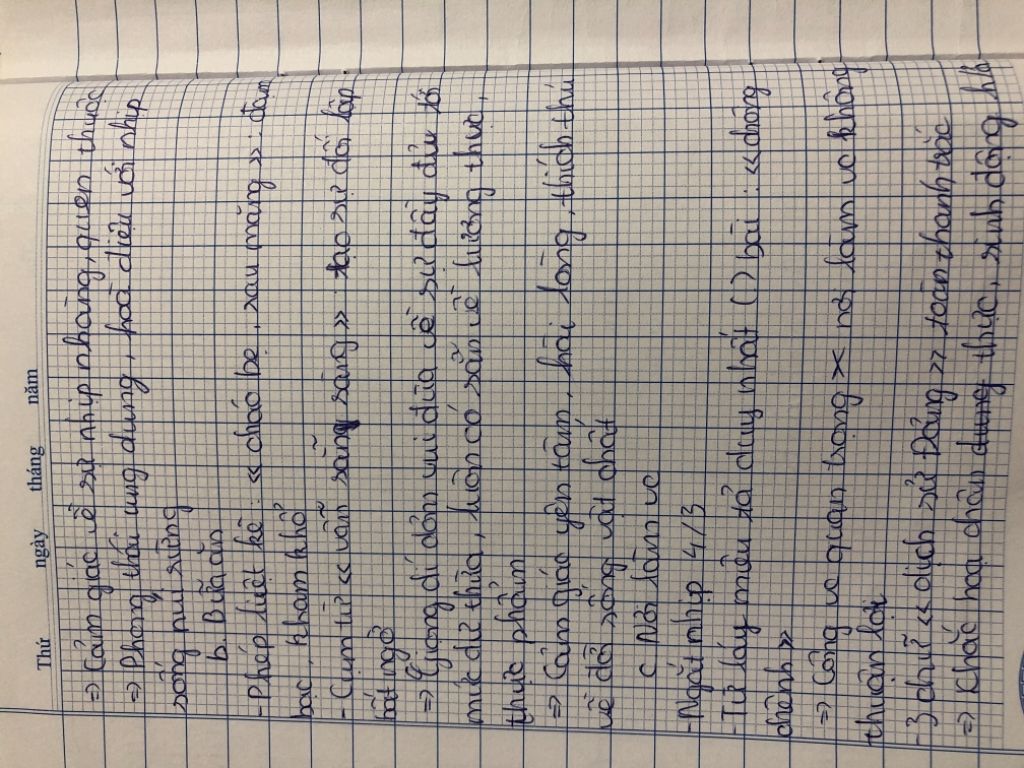 Thứ ngày tháng năm
=> Cảm giác về sự nhịp nhàng, quen thuộc
=> Phong thái ung dung, hoà điệu với nhịp
sống núi rừng
b. Bữa ăn
- Pháp liệt kê: << cháo bẹ, rau măng >>: đạm
bạc, kham khổ
- Cụm từ << vẫn sẵn sàng >>: tạo sự đối lập
bất ngờ
=> Giọng dí dỏm vui đùa về sự đầy đủ tới
mức dư thừa, luôn có sẵn về lương thực,
thực phẩm
=> Cảm giác yên tâm, hài lòng, thích thú
về đời sống vật chất
c. Nơi làm vc
- Ngắt nhịp 4/3
- Từ láy miêu tả duy nhất () bài: << chông
chênh >>
=> Công vc quan trọng >< nơi làm vc không
thuận lợi
- 3 chữ << dịch sử Đảng >> toàn thanh trắc
=> Khắc hoạ chân thực, sinh động h/a